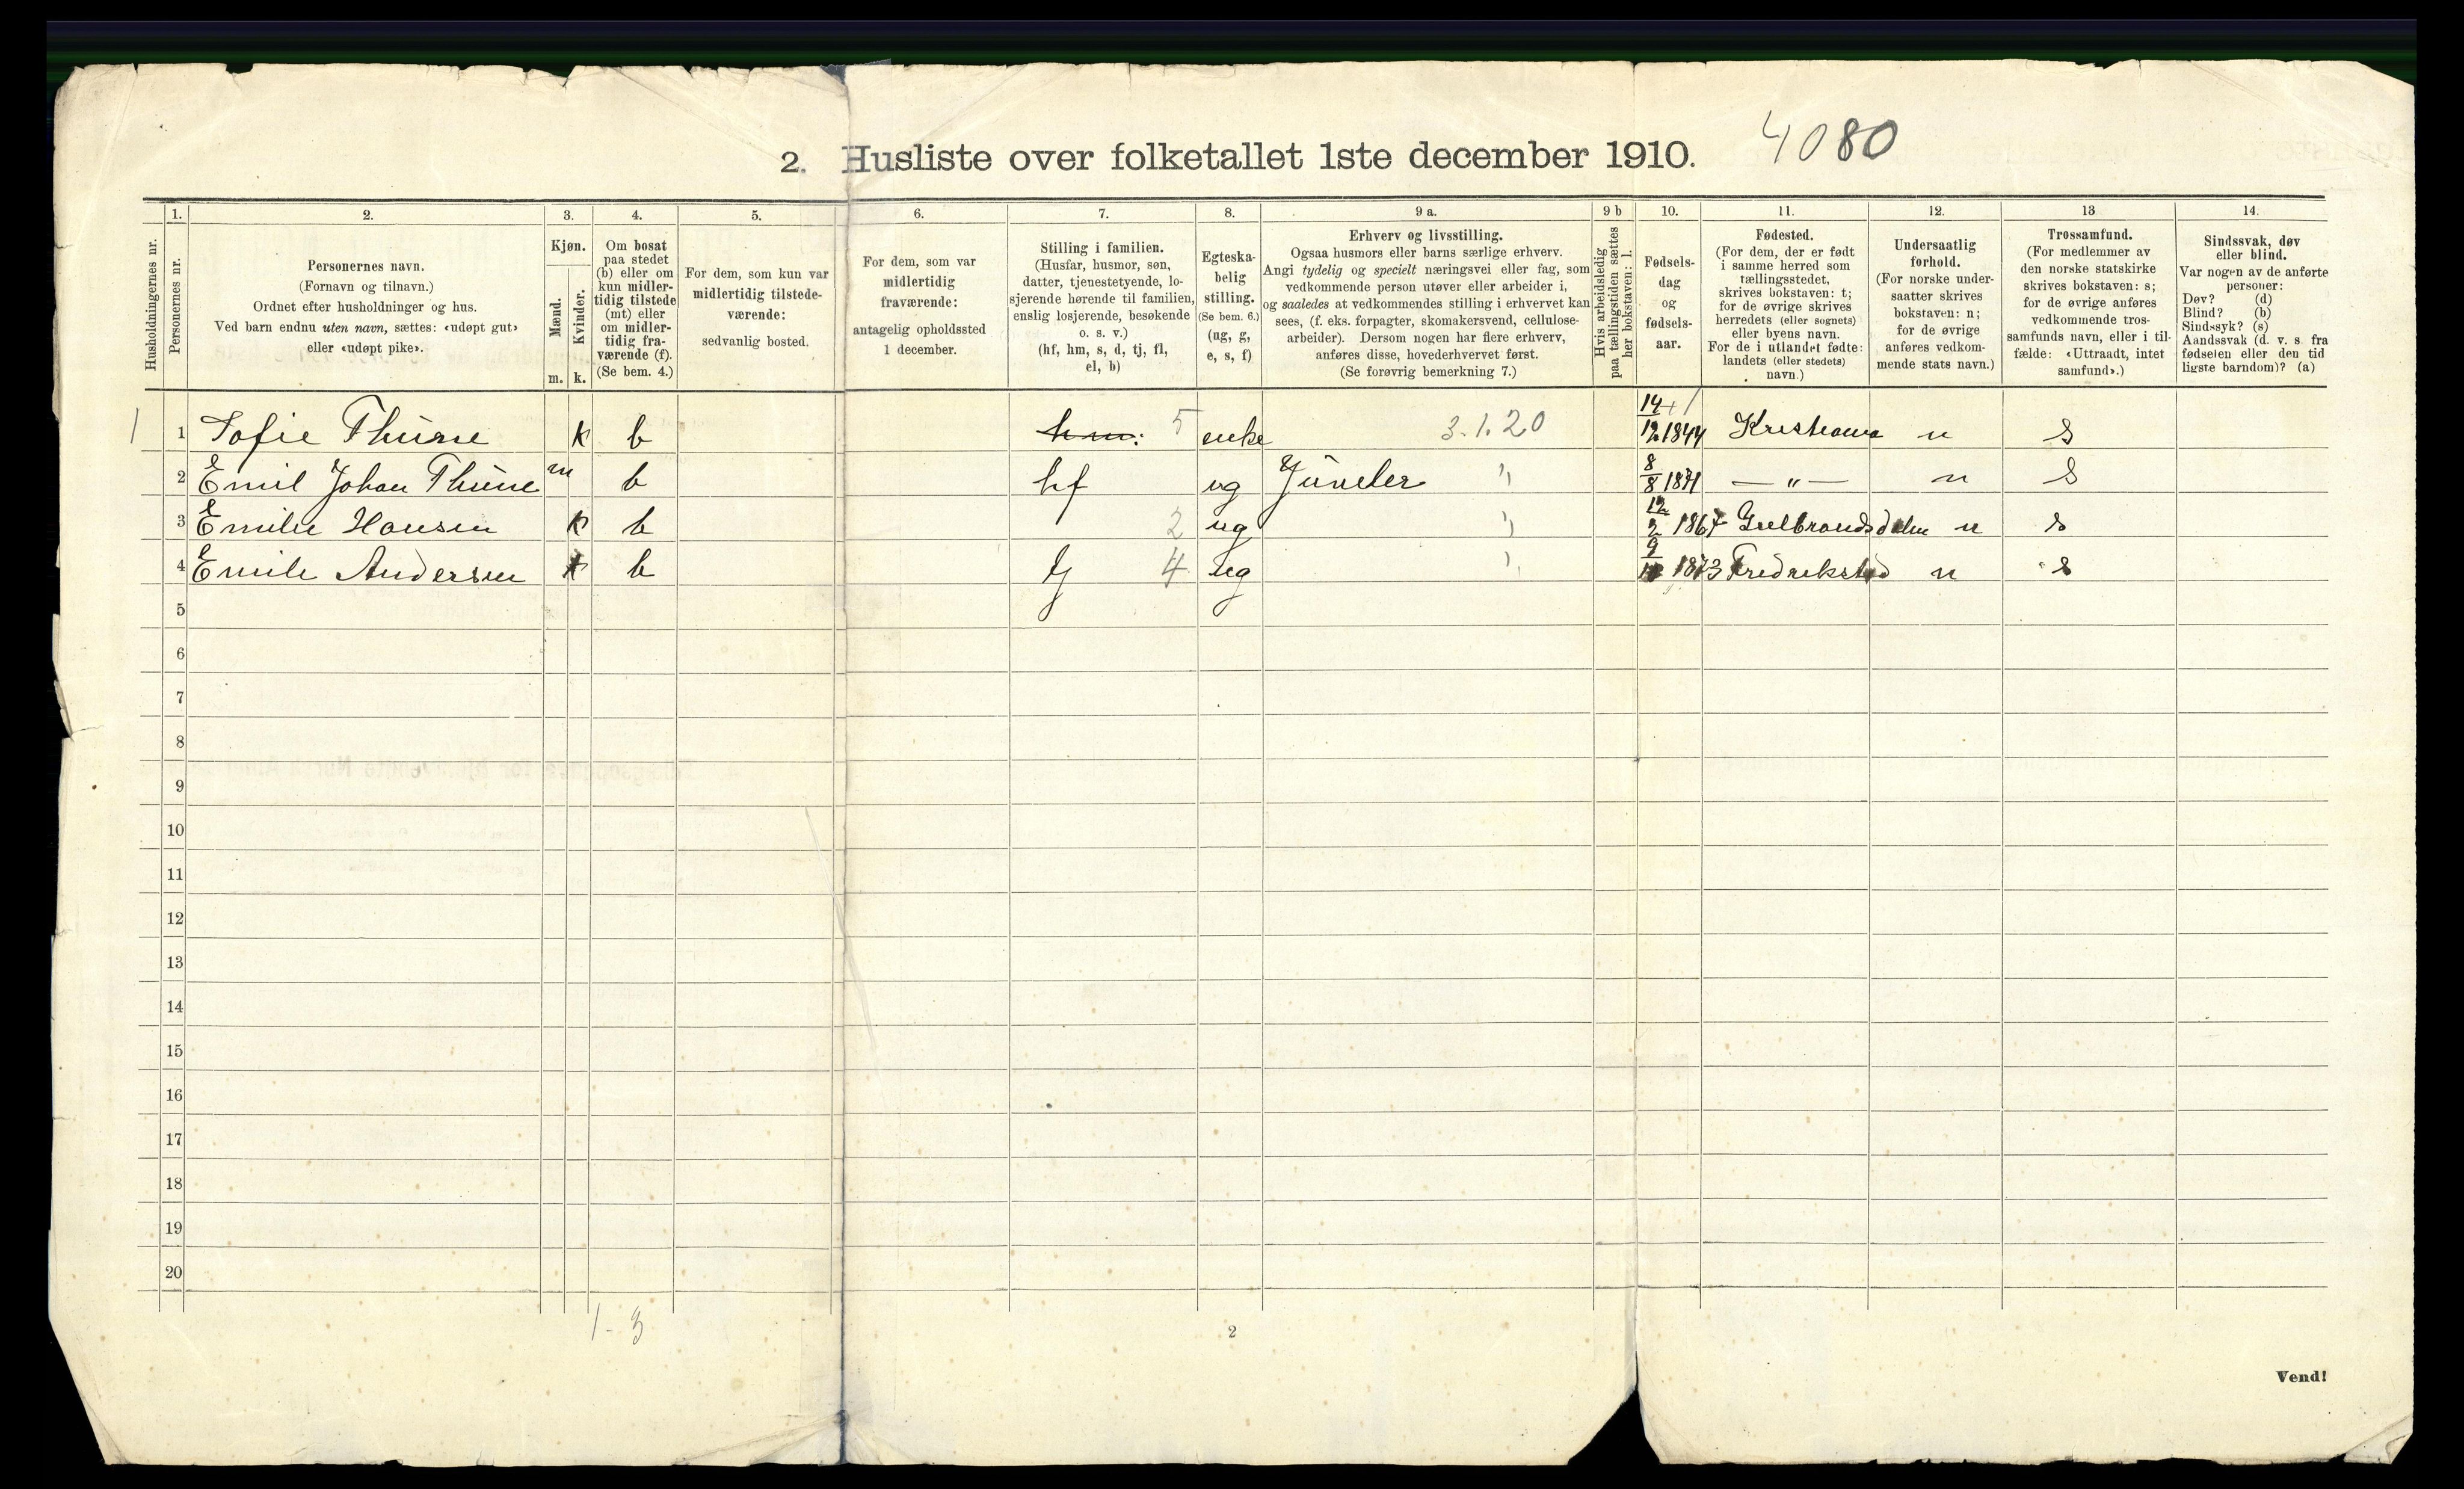 4080
2. Husliste over folketallet 1ste december 1910.
Husholdningernes nr.
1.
Personernes nr.
2.
Personernes navn.
(Fornavn og tilnavn.)
Ordnet efter husholdninger og hus.
Ved barn endnu uten navn, sættes: «udøpt gut»
eller «udøpt pike».
3.
Kjøn.
Mænd.
Kvinder.
m. k.
4.
Om bosat
paa stedet
(b) eller om
kun midler-
tidig tilstede
(mt) eller
om midler-
tidig fra-
værende (f).
(Se bem. 4.)
5.
For dem, som kun var
midlertidig tilstede-
værende:
sedvanlig bosted.
6.
For dem, som var
midlertidig
fraværende:
antagelig opholdssted
1 december.
7.
Stilling i familien.
(Husfar, husmor, søn,
datter, tjenestetyende, lo-
sjerende hørende til familien,
enslig losjerende, besøkende
o. s. v.)
(hf, hm, s, d, tj, fl,
el, b)
8.
Egteska-
belig
stilling.
(Se bem. 6.)
(ug, g,
e, s, f)
9 a.
Erhverv og livsstilling.
Ogsaa husmors eller barns særlige erhverv.
Angi tydelig og specielt næringsvei eller fag, som
vedkommende person utøver eller arbeider i,
og saaledes at vedkommendes stilling i erhvervet kan
sees, (f. eks. forpagter, skomakersvend, cellulose-
arbeider). Dersom nogen har flere erhverv,
anføres disse, hovederhvervet først.
(Se forøvrig bemerkning 7.)
9 b
Hvis arbeidsledig
paa tællingstiden sættes
her bokstaven: l.
10.
Fødsels-
dag
og
fødsels-
aar.
11.
Fødested.
(For dem, der er født
i samme herred som
tællingsstedet,
skrives bokstaven: t;
for de øvrige skrives
herredets (eller sognets)
eller byens navn.
For de i utlandet fødte:
landets (eller stedets)
navn.)
12.
Undersaatlig
forhold.
(For norske under-
saatter skrives
bokstaven: n;
for de øvrige
anføres vedkom-
mende stats navn.)
13
Trossamfund.
(For medlemmer av
den norske statskirke
skrives bokstaven: s;
for de øvrige anføres
vedkommende tros-
samfunds navn, eller i til-
fælde: «Uttraadt, intet
samfund».)
14.
Sindssvak, døv
eller blind.
Var nogen av de anførte
personer:
Døv? (d)
Blind? (b)
Sindssyk? (s)
Aandssvak (d. v. s. fra
fødselen eller den tid
ligste barndom)? (a)
1 1 Sofie Thune k b hm: 5 enke 3.1.20 14/12 1844 Kristiania n s
2 Emil Johan Thune m b hf ug Juveler " 8/8 1871 — " — n s
3 Emilie Hansen k b 2 ug " 12/2 1867 Gulbrandsdalen n s
4 Emile Andersen k b tj 4 ug " 9/ 1873 Fredrikstad n s
5
6
7
8
9
10
11
12
13
14
15
16
17
18
19
20
1 - 3
2
Vend!